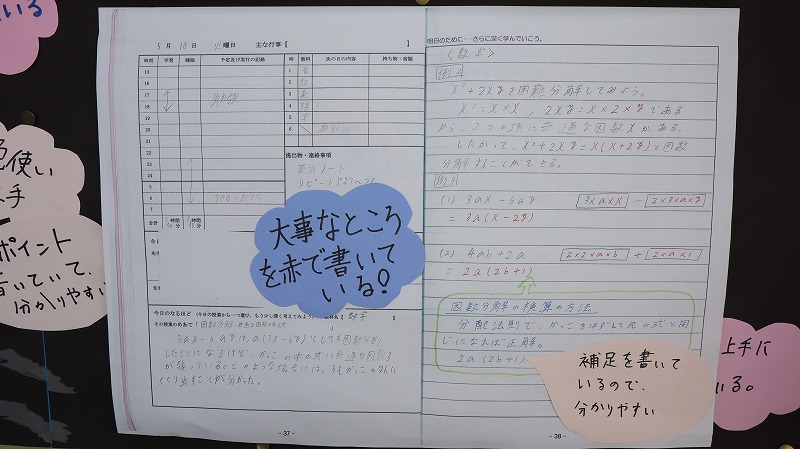 いる
色使い
上手
ポイント
書いていて、
分かりやすい
5月 13日 火曜日 主な行事【
時刻 学習 睡眠 予定及び実行の記録
15
16
17
18
19
20
21
22
23
24
5
6
7
勉強
合計 時間 分 時間 分
時 教科 次の日の内容 持ち物・宿題
1
2
3
4
5
6
提出物・連絡事項
英語ノート
リピート P27~28
大事なところ
を赤で書いて
いる?
今日のなるほど (今日の授業から一つ選び、もう少し深く考えてみよう)
数学
その授業のめあて「因数分解
3ax-6ayは、a(3x-6y)としても因数分解
したことになるけど、かっこの中の式に共通な因数3
が残っている。このような場合には、3もかっこの外に
くくり出すことが分かった。
- 37 -
明日のために・・・さらに深く学んでいこう。
<数学>
例2
x²+2xyを因数分解してみよう。
x²=x×x, 2xy=x×2×yである
から、2つの項に共通な因数xがある。
したがって、x²+2xy=x(x+2y)と因数
分解することができる。
例3
(1) 3ax-6ay 3×a×x - 2×3×a×y
=3a(x-2y)
(2) 4ab+2a 2×2×a×b + 2×a×1
=2a(2b+1)
因数分解の検算の方法
分配法則で、かっこをはずして元の式と同
じになれば正解。
2a(2b+1)
補足を書いて
いるので、
分かりやすい
- 38 -
上手に
いる。